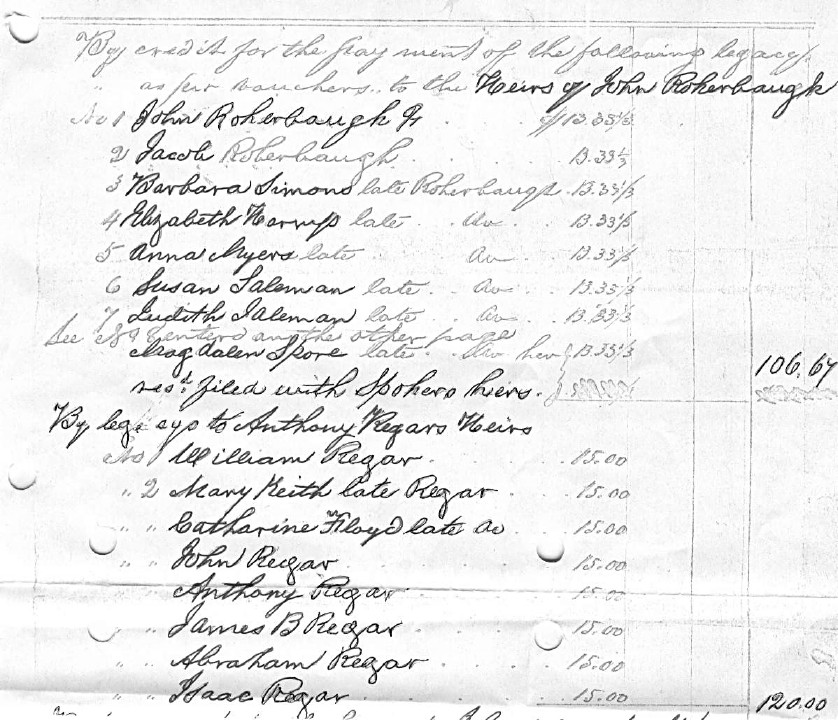 By credit for the payment of the following legacy
" as per vouchers to the Heirs of John Roherbaugh
No 1 John Roherbaugh Jr $13.33 1/3
2 Jacob Roherbaugh 13.33 1/3
3 Barbara Simons late Roherbaugh 13.33 1/3
4 Elizabeth Harnp late Do 13.33 1/3
5 Anna Myers late Do 13.33 1/3
6 Susan Taleman late Do 13.33 1/3
7 Judith Taleman late Do 13.33 1/3
See No 8 entered on the other page
Magdalen Spore late Do her 13.33 1/3 106.67
rest filed with Spohers heirs.
By legacys to Anthony Regars Heirs
No 1 William Regar 15.00
" 2 Mary Keith late Regar 15.00
" " Catharine Floyd late Do 15.00
" " John Regar 15.00
" " Anthony Regar 15.00
" " James B Regar 15.00
" " Abraham Regar 15.00
" " Isaac Regar 15.00 120.00